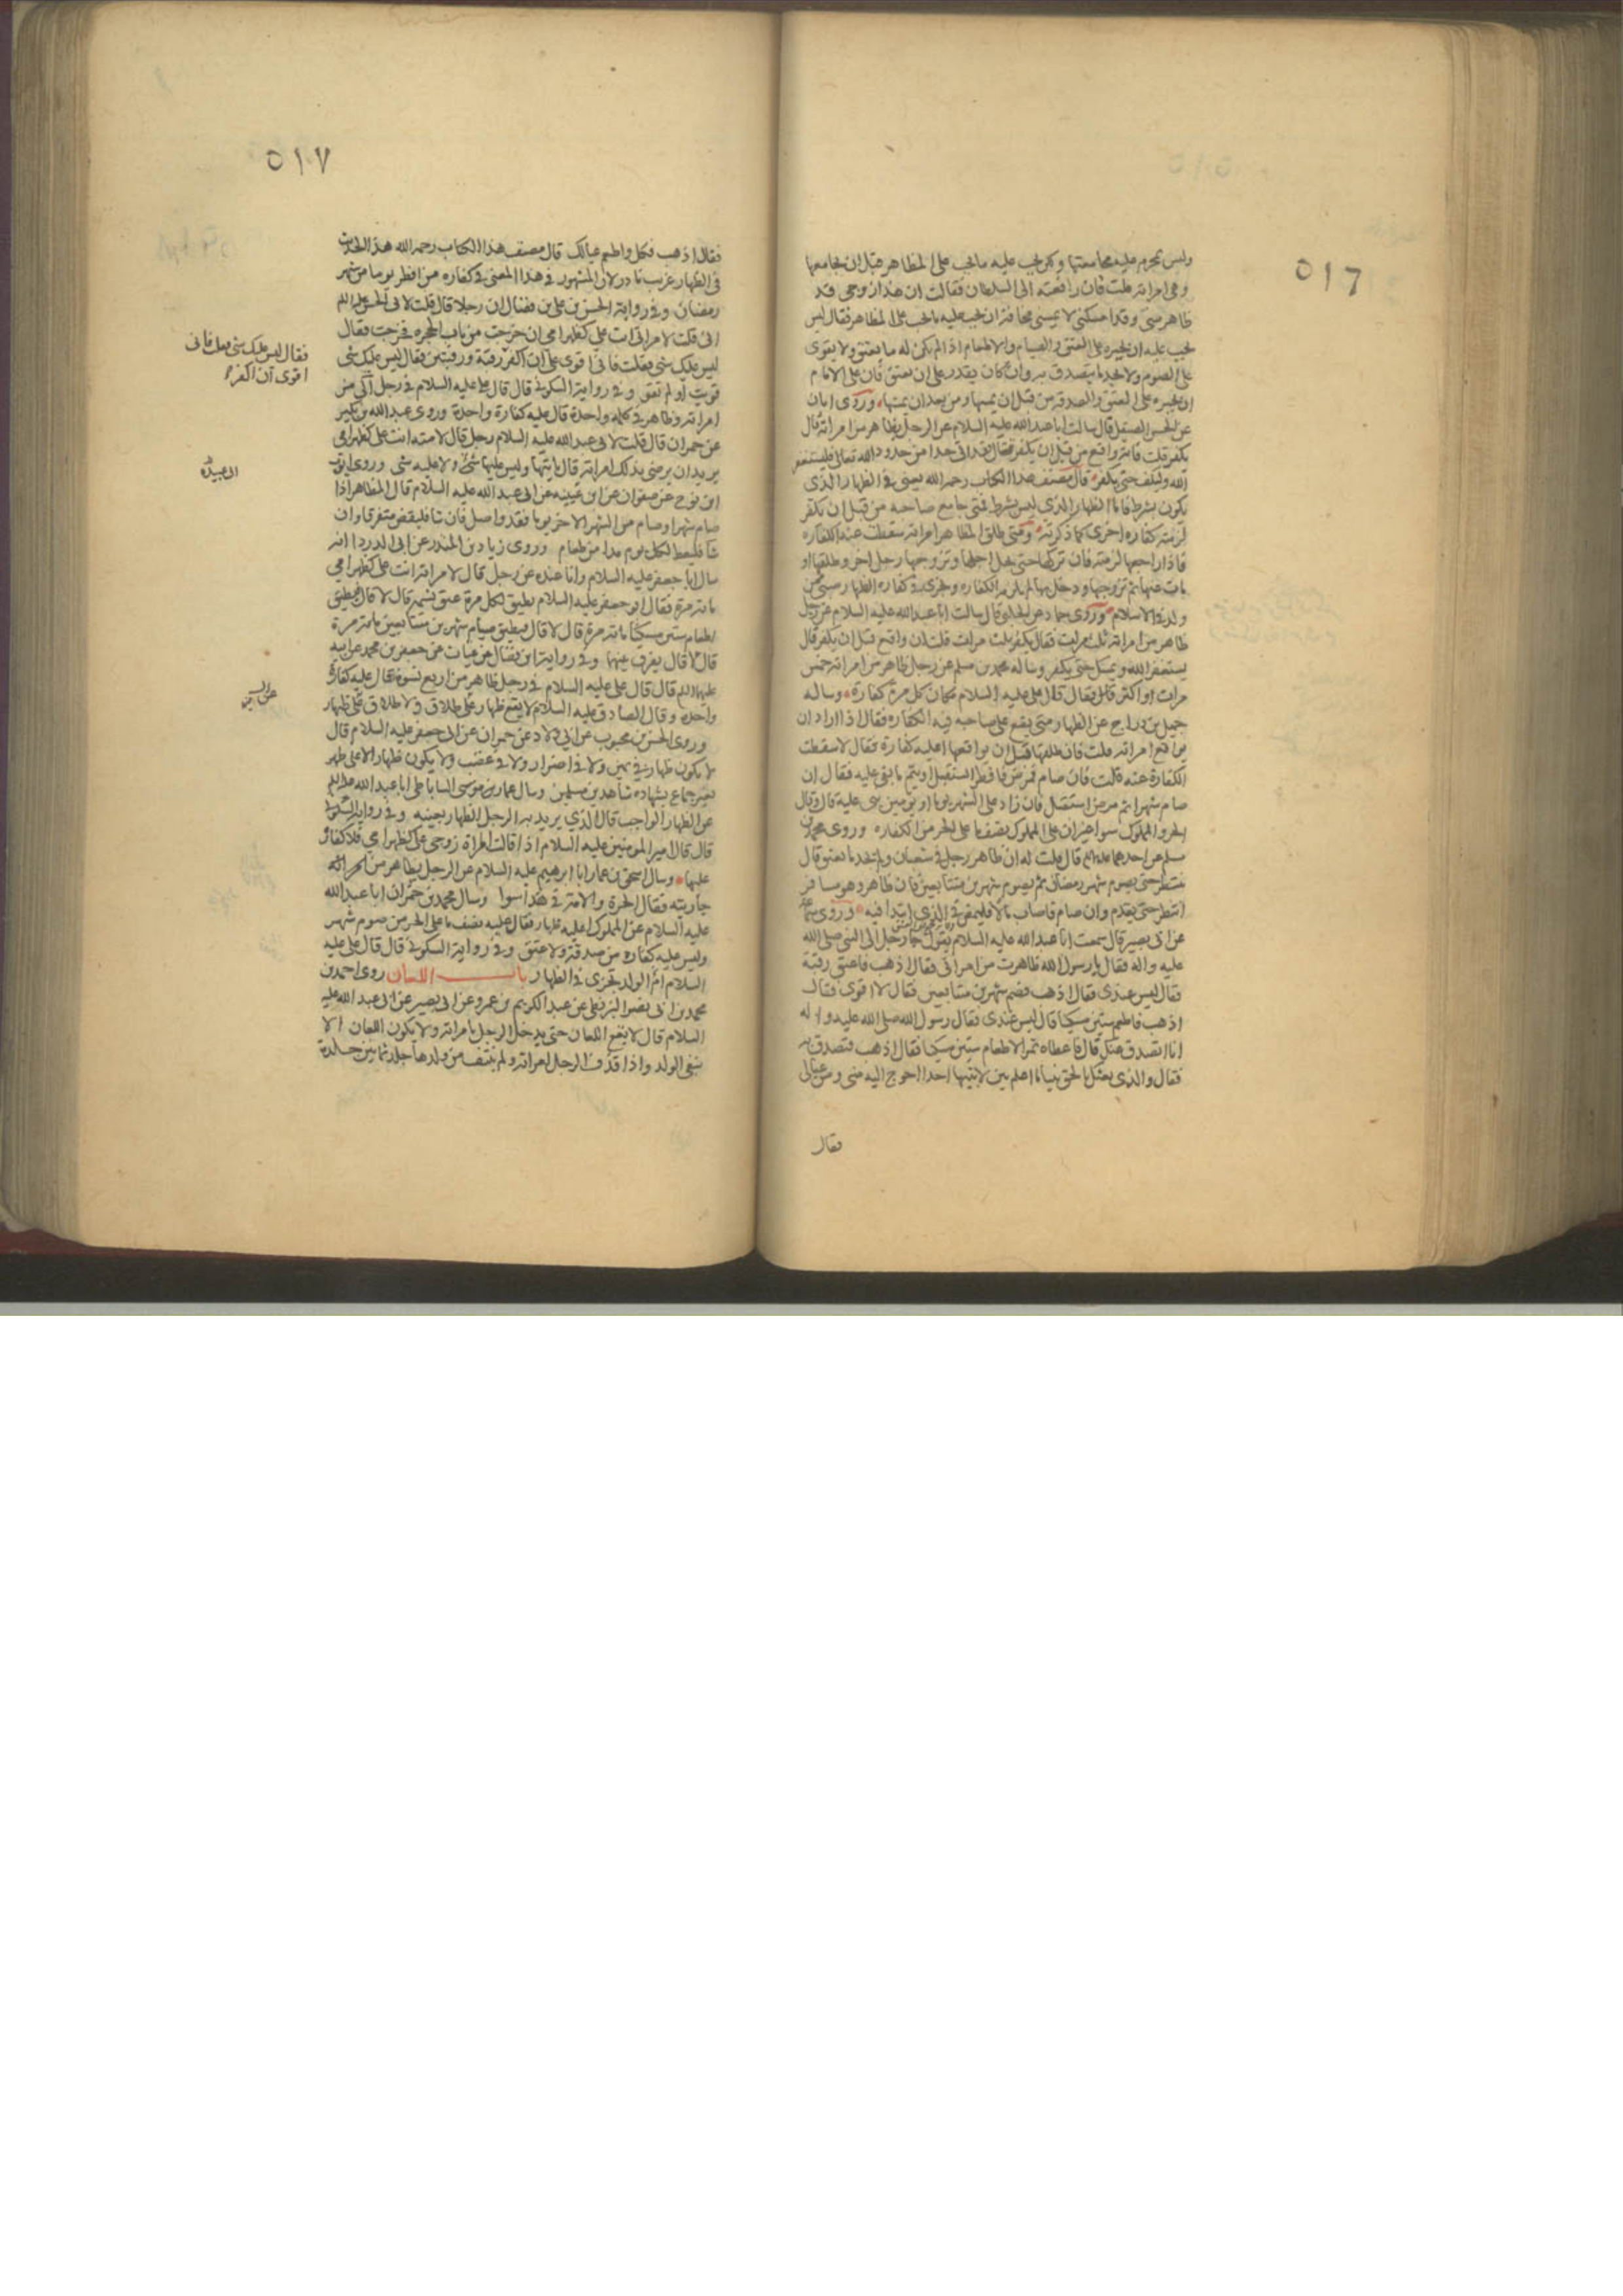 ٥١٦
وليس يحرم عليه مجامعتها ولكن يجب عليه ما يجب على المظاهر قبل ان يجامعها
وهي امراته قلت فان رافعته الى السلطان فقالت ان هذا زوجي قد
ظاهر مني وقد امسكني لا يمسني مخافة ان يجب عليه ما يجب على المظاهر فقال ليس
يجب عليه ان يجبره على العتق والصيام والاطعام اذا لم يكن له ما يعتق ولا يقوى
على الصوم ولا يجد ما يتصدق به وان كان يقدر على ان يعتق فان على الامام
ان يجبره على العتق والصدقة من قبل ان يمسها ومن بعد ان يمسها وروى ابان
عن الحسن الصيقل قال سالت ابا عبدالله عليه السلام عن الرجل يظاهر من امراته قال
يكفر قلت فانه واقع من قبل ان يكفر فقال فقد اتى حدا من حدود الله تعالى فليستغفر
الله وليكف حتى يكفر قال مصنف هذا الكتاب رحمه الله يعني في الظهار الذى
يكون بشرط فاما الظهار الذي ليس بشرط فمتى جامع صاحبه من قبل ان يكفر
لزمته كفاره اخرى كما ذكرته ومتى طلق المظاهر امراته سقطت عنه الكفاره
فاذا راجعها لزمته فان تركها حتى يحل اجلها وتزوجها رجل اخر وطلقها او
مات عنها ثم تزوجها ودخل بها لم يلزمه الكفاره ويجزى في كفاره الظهار صبي ممن
ولد في الاسلام وروى حماد عن الحلبي قال سالت ابا عبدالله عليه السلام عن رجل
ظاهر من امراته ثلث مرات فقال يكفر ثلث مرات قلت ان واقع قبل ان يكفر قال
يستغفر الله ويمسك حتى يكفر وساله محمد بن مسلم عن رجل ظاهر من امراته خمس
مرات او اكثر فقال قال على عليه السلام مكان كل مرة كفارة وساله
جميل بن دراج عن الظهار متى يقع على صاحبه فيه الكفاره فقال اذا اراد ان
يواقع امراته قلت فان طلقها قبل ان يواقعها اعليه كفارة فقال لا سقطت
الكفارة عنه قلت فان صام فمرض فافطر ايستقبل او يتم ما بقى عليه فقال ان
صام شهرا ثم مرض استقبل فان زاد على الشهر يوما او يومين بنى عليه قال وقال
الحر والمملوك سوا غير ان على المملوك نصف ما على الحر من الكفاره وروى محمد بن
مسلم عن احدهما قال قلت له ان ظاهر رجل في شعبان ولم يجد ما يعتق قال
ينتظر حتى يصوم شهر رمضان ثم يصوم شهرين متتابعين فان ظاهر وهو مسافر
انتظر حتى يقدم وان صام فاصاب مالا فليمض في الذي ابتدا فيه وروى سماعة
عن ابي بصير قال سمعت ابا عبدالله عليه السلام يقول جا رجل الى النبي صلى الله
عليه واله فقال يا رسول الله ظاهرت من امراتي فقال اذهب فاعتق رقبة
فقال ليس عندى فقال اذهب فصم شهرين متتابعين فقال لا اقوى فقال
اذهب فاطعم ستين مسكينا قال ليس عندى فقال رسول الله صلى الله عليه واله
انا اتصدق عنك قال فاعطاه تمرا لاطعام ستين مسكينا فقال اذهب فتصدق به
فقال والذى بعثك بالحق نبيا ما اعلم بين لابتيها احدا احوج اليه منى ومن عيالى
فقال
٥١٧
فقال اذهب فكل واطعم عيالك قال مصنف هذا الكتاب رحمه الله هذا الحديث
في الظهار غريب نادر لان المشهور في هذا المعنى في كفاره من افطر يوما من شهر
رمضان وفي رواية الحسن بن على بن فضال ان رجلا قال قلت لابي الحسن عليه السلم
انى قلت لامراتى انت على كظهر امى ان خرجت من باب الحجره فخرجت فقال
ليس عليك شي فقلت فاني اقوى على ان اكفر رقبة ورقبتين فقال ليس عليك شى
قويت او لم تقو وفي رواية السكوني قال قال على عليه السلام في رجل آلى من
امراته وظاهر في كلمه واحدة قال عليه كفارة واحدة وروى عبدالله بن بكير
عن حمران قال قلت لابى عبدالله عليه السلام رجل قال لامته انت على كظهر امى
يريد ان يرضى بذلك امراته قال ياتيها وليس عليها شئ ولا عليه شى وروى ايوب
ابن نوح عن صفوان عن ابن عيينه عن ابى عبدالله عليه السلام قال المظاهر اذا
صام شهرا وصام من الشهر الاخر يوما فقد واصل فان شا فليقض متفرقا وان
شا فليعط لكل يوم مدا من طعام وروى زياد بن المنذر عن ابى الدردا انه
سال ابا جعفر عليه السلام وانا عنده عن رجل قال لامراته انت على كظهر امي
مائه مرة فقال ابو جعفر عليه السلام يطيق لكل مرة عتق نسمه قال لا قال فيطيق
اطعام ستين مسكينا مائه مرة قال لا قال فيطيق صيام شهرين متتابعين مائة مرة
قال لا قال يفرق بينهما وفي رواية ابن فضال عن غياث عن جعفر بن محمد عن ابيه
عليهما السلم قال قال على عليه السلام في رجل ظاهر من اربع نسوة قال عليه كفارة
واحدة وقال الصادق عليه السلام لا يقع ظهار على طلاق ولا طلاق على ظهار
وروى الحسن بن محبوب عن ابي ولاد عن حمران عن ابى جعفر عليه السلام قال
لا يكون ظهار في يمين ولا في اضرار ولا في غضب ولا يكون ظهار الا على طهر
بغير جماع بشهاده شاهدين مسلمين وسال عمار بن موسى الساباطى ابا عبدالله عليه السلم
عن الظهار الواجب قال الذي يريد به الرجل الظهار بعينه وفي رواية السكوني
قال قال امير المومنين عليه السلام اذا قالت المراة زوجى على كظهر امى فلا كفارة
عليها وسال اسحق بن عمار ابا ابرهيم عليه السلام عن الرجل يظاهر من
جاريته فقال الحرة والامة في هذا سوا وسال محمد بن حمران ابا عبدالله
عليه السلام عن المملوك اعليه ظهار فقال عليه نصف ما على الحر من صوم شهر
وليس عليه كفاره من صدقة ولا عتق وفي رواية السكوني قال قال على عليه
السلام ام الولد تجزى في الظهار باب اللعان روى احمد بن
محمد بن ابي نصر البزنطى عن عبد الكريم بن عمرو عن ابي بصير عن ابى عبد الله عليه
السلام قال لا يقع اللعان حتى يدخل الرجل بامراته ولا يكون اللعان الا
بنفى الولد واذا قذف الرجل امراته ولم ينتف من ولدها جلد ثمانين جلدة
فقال ليس عليك شى قلت فانى
اقوى ان اكفر